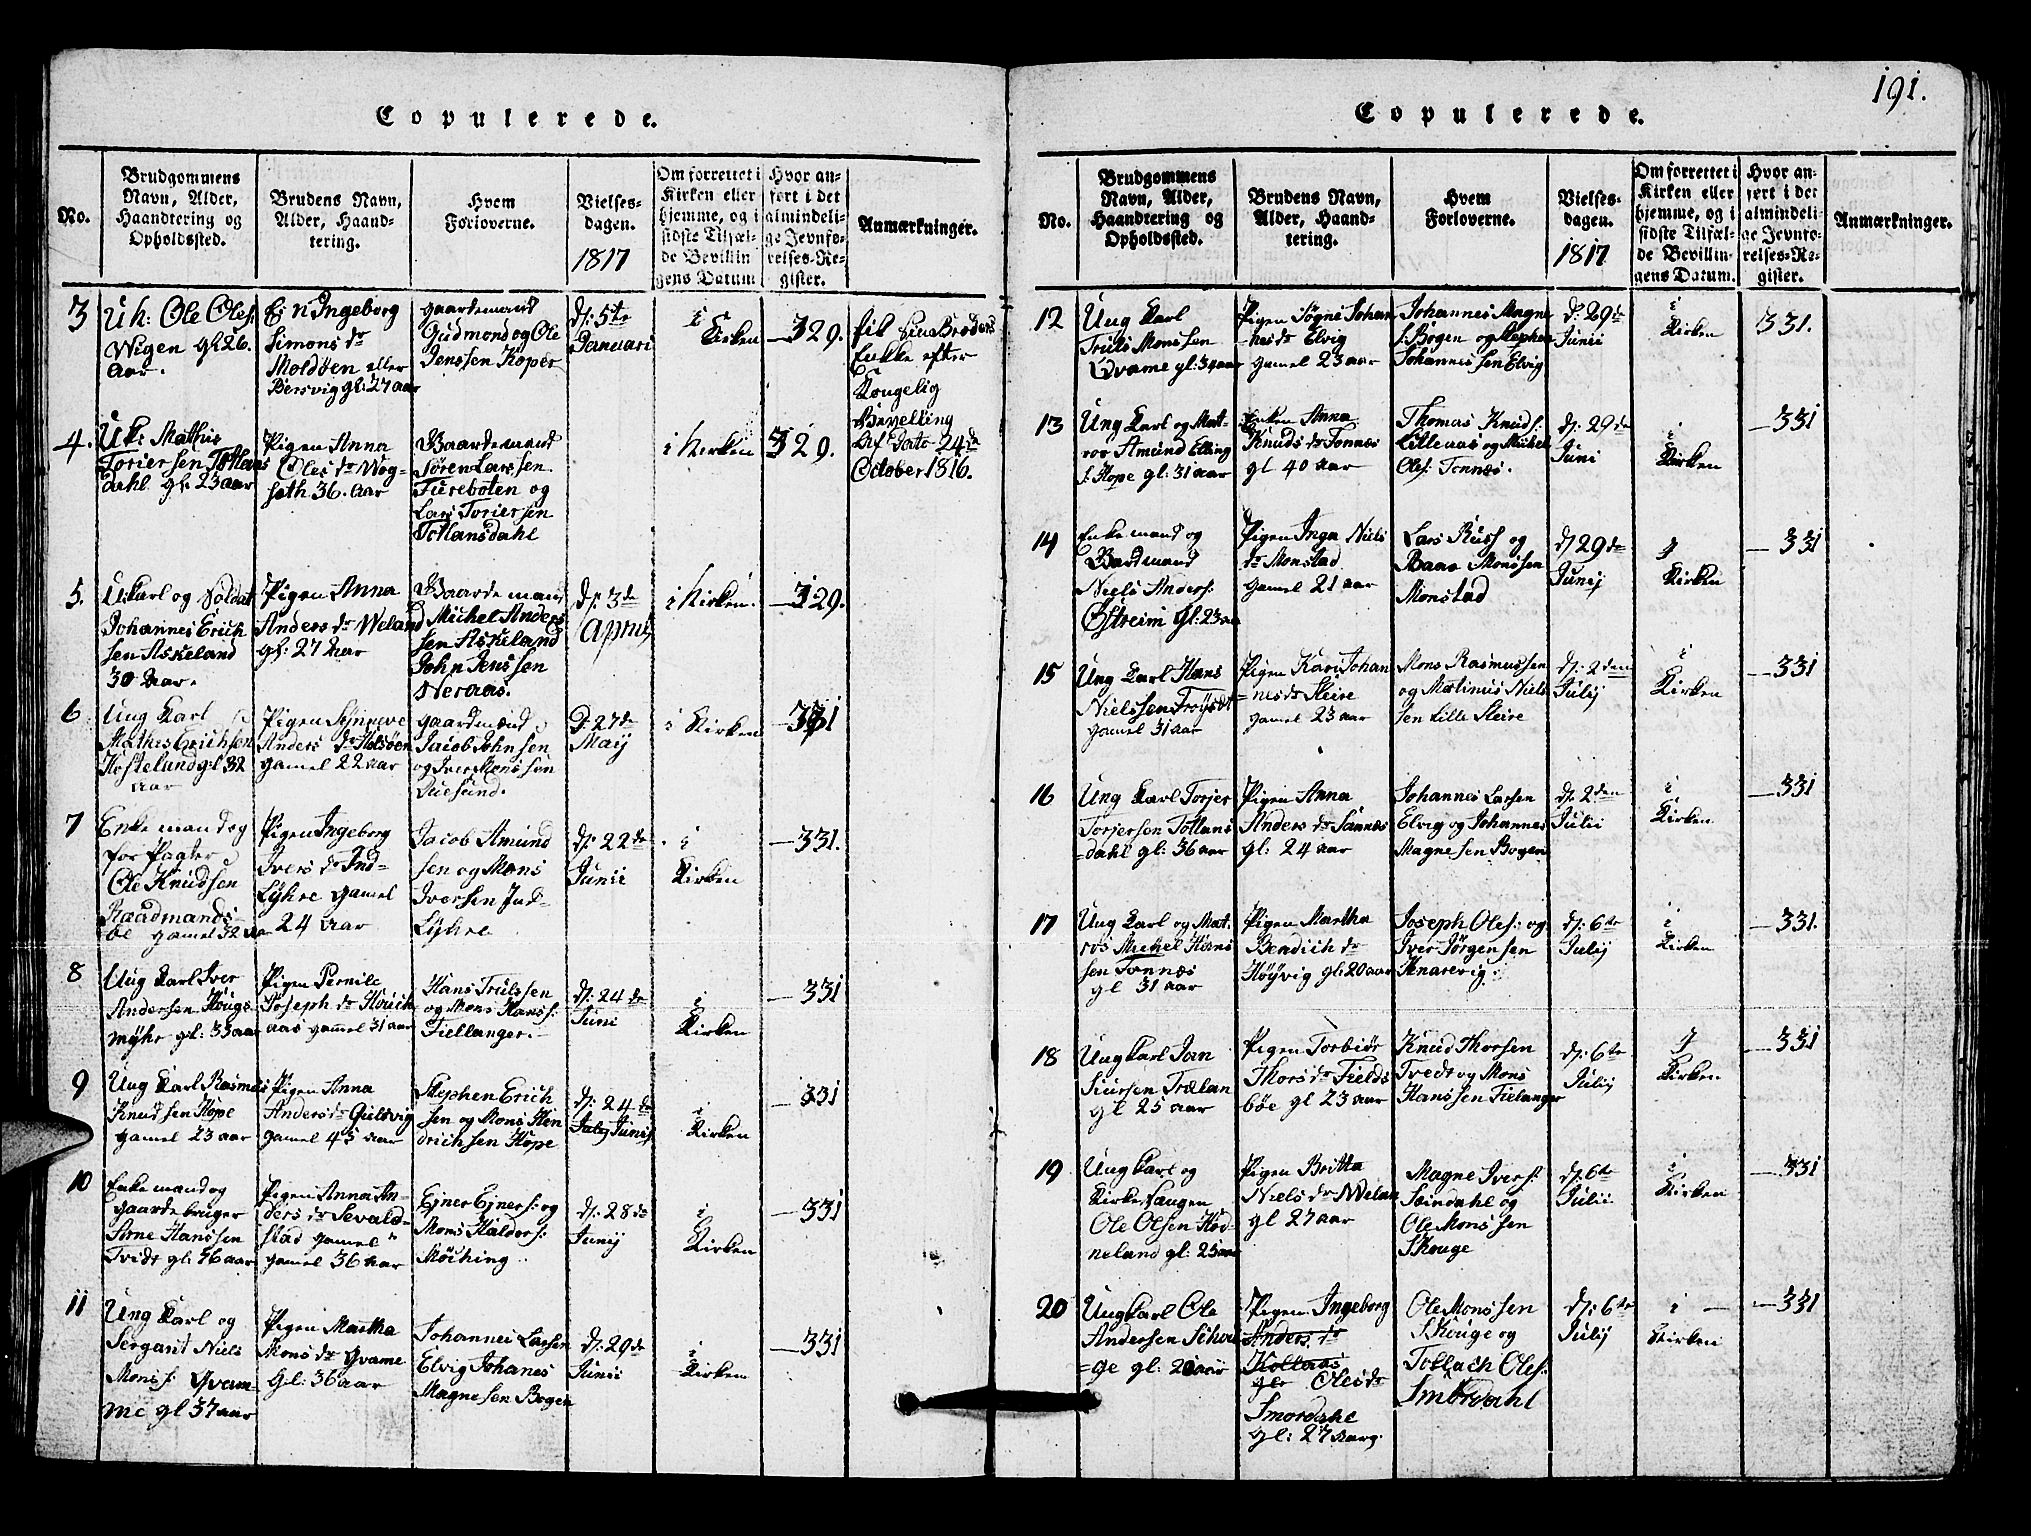 191.
Copulerede.
No.
Brudgommens
Navn, Alder,
Haandtering og
Opholdssted.
Brudens Navn,
Alder, Haand-
tering.
Hvem
Forloverne.
Vielses-
dagen.
1817
Om forrettet i
Kirken eller
hjemme, og i
sidste Tilfæl-
de Bevillin
gens Datum
Hvor an-
ført i det
almindeli-
ge Jevnfø-
relses-Re-
gister.
Anmærkninger.
3
Uk: Ole Oles:
Wigen gl 26.
Aar.
Ingeborg
Simons dr
Moldøen eller
Bersvig gl: 27 aar
gaardemænd
Gudmond og Ole
Jenssen Koper
d: 5te
Januari
i
Kirken
329.
fik sin Broders
Enkke efter
Kongelig
Bevelling
Af Dato 24de
October 1816.
4.
Uk: Mathis
Toriersen Totlans
dahl gl. 23 aar
Pigen Anna
Oles dr Wog-
seth 36. Aar
Gaardemænd
Søren Larssen
Furebøten og
Lars Toriersen
Totlansdahl
i Kirken
329.
5.
Ukarl og Soldat
Johannes Erich
sen Askeland
30 Aar.
Pigen Anna
Anders dr Weland
gl. 27 Aar
Gaarde mænd
Michel Anders
sen Askeland
John Jenssen
Neraas.
d: 3de
April
i Kirken.
329.
6
Ung Karl
Mathis Erichsen
Kostelund gl 32
aar
Pigen Synneve
Anders dr Holsøen
gamel 22 aar
gaardmænd
Jacob Johnsen
og Iver Monssen
Duesund.
D: 27de
Maÿ
i Kirken
331
7
Enke mand og
for Pagter
Ole Knudsen
Raadmands-
bøe gamel 32 aar
Pigen Ingeborg
Ivers dr Ind-
Lÿhre gamel
24 aar
Jacob Amund
sen og Mons
Iversen Ind-
Lÿhre
d: 22de
Junii
i
Kirken
331.
8
Ung Karl Iver
Andersen Houg-
mÿhr gl: 33 aar
Pigen Pernile
Joseph dr Kouch
aas gamel 31 aar
Hans Trulssen
og Mons Hanss:
Fiellanger.
d: 24de
Juni
i
Kirken
331
9
Ung Karl Rasmus
Knudsen Hope
gamel 23 aar
Pigen Anna
Anders dr Gulsvig
gamel 45 aar
Stephen Erich
sen og Mons Hen
drichsen Hope
d: 24de
Julij Junij
i
Kirken
331
10
Enke mand og
gaarde bruger
Arne Hanssen
Tvidt gl: 46 aar
Pigen Anna An-
ders dr Sevald-
stad gamel
gamel 36 aar
Ejner Ejners: og
Mons Haldors:
Møching
d: 28de
Junij
i
Kirken
331
11
Ung Karl og
Sergant Niels
Monss: Qvam-
me gl 37 aar
Pigen Martha
Mons dr Qvame
Gl: 36 aar
Johannes Larsen
Elvig Johanes
Magnesen Bogen
d: 29de
Junii
i
Kirken
331
Copulerede.
No.
Brudgommens
Navn, Alder,
Haandtering og
Opholdssted.
Brudens Navn,
Alder, Haand-
tering.
Hvem
Forloverne.
Vielses-
dagen.
1817
Om forrettet i
Kirken eller
hjemme, og i
sidste Tilfæl-
de Bevillin-
gens Datum.
Hvor an-
ført i det
almindeli-
ge Jevnfø-
relses-Re-
gister.
Anmærkninger.
12
Ung Karl
Truls Monssen
Qvame gl: 34 aar
Pigen Søgni Johan
nes dr Elvig
gamel 23 aar
Johannes Magne
s: Bogen og Stephen
Johannessen Elvig
d: 29de
Junii
i
Kirken
331.
13
Ung Karl og Mat-
ros Amund Elling
s: Hope gl: 31 aar
Enken Anna
Knuds dr Tonnes
gl 40 aar
Thomas Knuds:
Lilleaas og Mickel
Oles: Tonnes.
d: 29de
Juni
i
Kirken
331
14
Enke mand og
Baadmand
Niels Anders:
Østreim gl: 23 aar
Pigen Inga Niels
dr Monstad
gamel 21 aar
Lars Russ og
Baar Monssen
Monstad
d: 29de
Junij
J
Kirken
331
15
Ung Karl Hans
Nielssen Froÿset
gamel 31 aar
Pigen Kari Johan
nes dr Sleire
gamel 23 aar
Mons Rasmussen
og Matinus Niels
sen Lille Sleire
d: 2den
Julij
i
Kirken
331
16
Ung Karl Torjer
Torjersen Totlans
dahl gl: 36 aar
Pigen Anna
Anders dr Sannes
gl: 24 aar
Johannes Larsen
Elvig og Johannes
Magnesen Bogen
d: 2den
Julii
i
Kirken
331
17
Ung Karl og Mat
ros Michel Hans
sen Tonnes
gl 31 aar
Pigen Martha
Bendich dr
Høÿvig gl: 20 aar
Joseph Oles: og
Iver Jørgensen
Knarevig.
d: 6te
Julij
i
Kirken
331.
18
Ung Karl Jan
Siursen Trælan
gl 25 aar
Pigen Torbiør
Thors dr Fields
bøe gl 23 aar
Knud Thorsen
Tvedt og Mons
Hanssen Fielanger
d: 6te
Julij
J
Kirken
331
19
Ung Karl og
Kirke Sangen
Ole Olsen Hod-
neland gl: 25 aar
Pigen Britta
Niels dr Welan
gl 27 aar
Magne Ivers:
Steindahl og
Ole Monssen
Skouge
d: 6te
Julii
i
Kirken
331
20
Ung Karl Ole
Andersen
ge gl: 20 aar
Pigen Ingeborg
Anders dr
Kollaas
Oles dr
Smørdahl
gl: 27 aar
Ole Monssen
Skouge og
Tollach Oles:
Smørdahl
d: 6te
Julij
i
Kirken
331